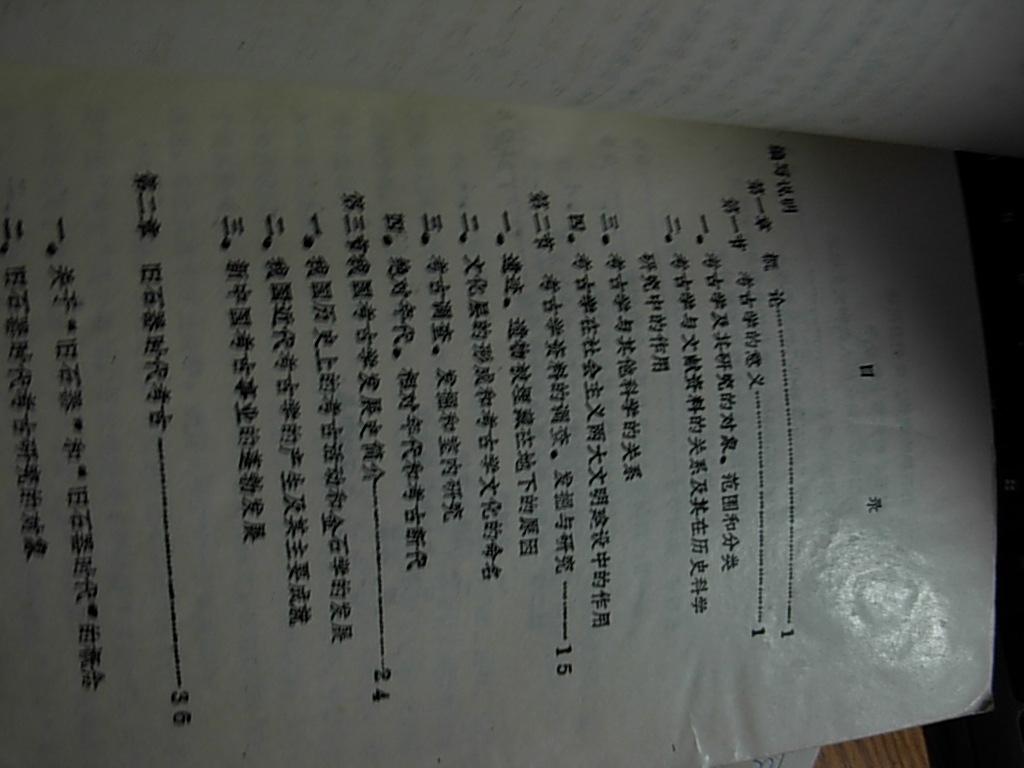 目 录
编写说明
第一章 概 论……………………1
第一节 考古学的意义……………………1
一、考古学及其研究的对象、范围和分类
二、考古学与文献资料的关系及其在历史科学
研究中的作用
三、考古学与其他科学的关系
四、考古学在社会主义两大文明建设中的作用
第二节 考古学资料的调查、发掘与研究……15
一、遗迹、遗物被埋藏在地下的原因
二、文化层的形成和考古学文化的命名
三、考古调查、发掘和室内研究
四、绝对年代、相对年代和考古断代
第三节 我国考古学发展史简介……………24
一、我国历史上的考古活动和金石学的发展
二、我国近代考古学的产生及其主要成就
三、新中国考古事业的蓬勃发展
第二章 旧石器时代考古……………………36
一、关于“旧石器”和“旧石器时代”的概念
二、旧石器时代考古研究的对象